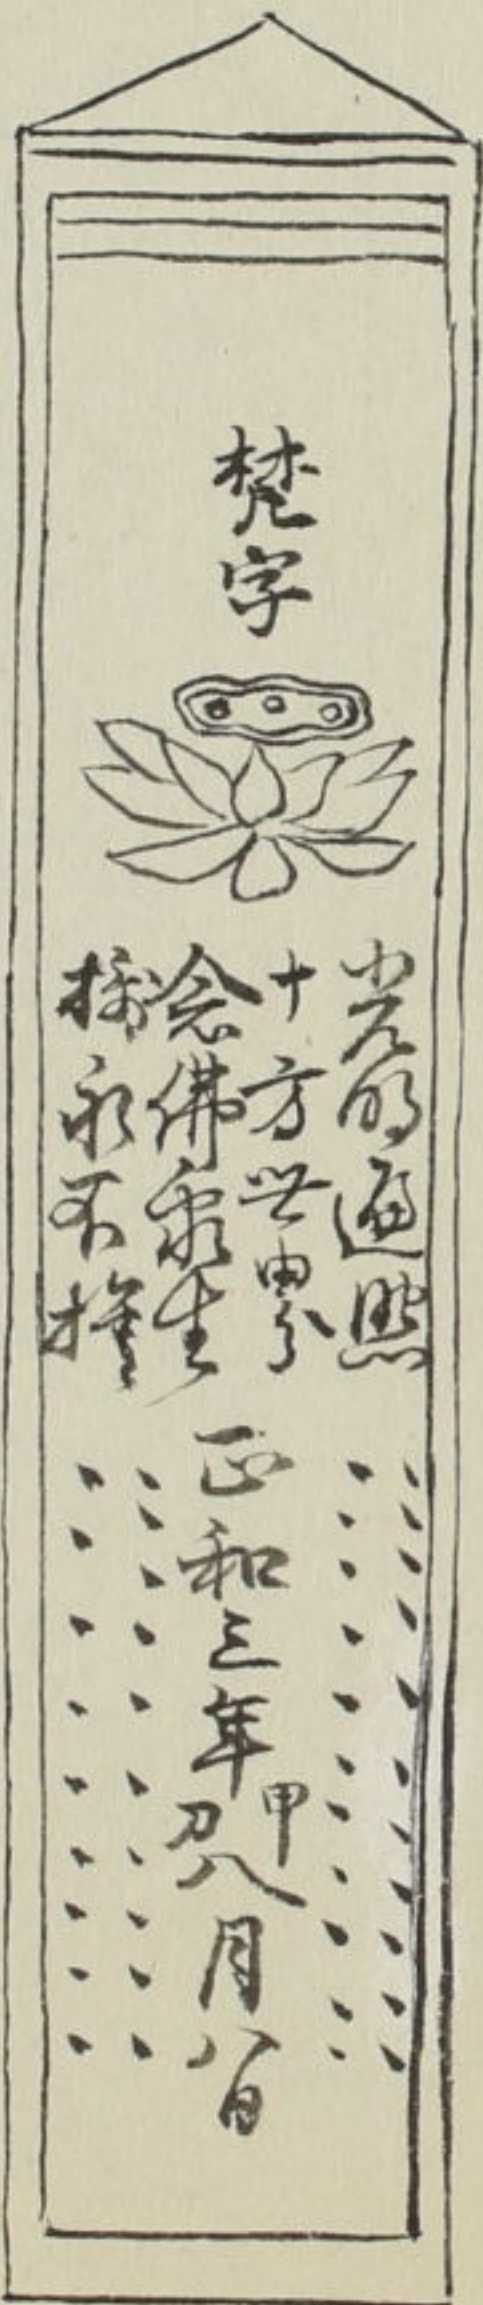 梵字
光明遍照
十方世界
念佛衆生
摂取不捨
正和三年甲刁八月八日